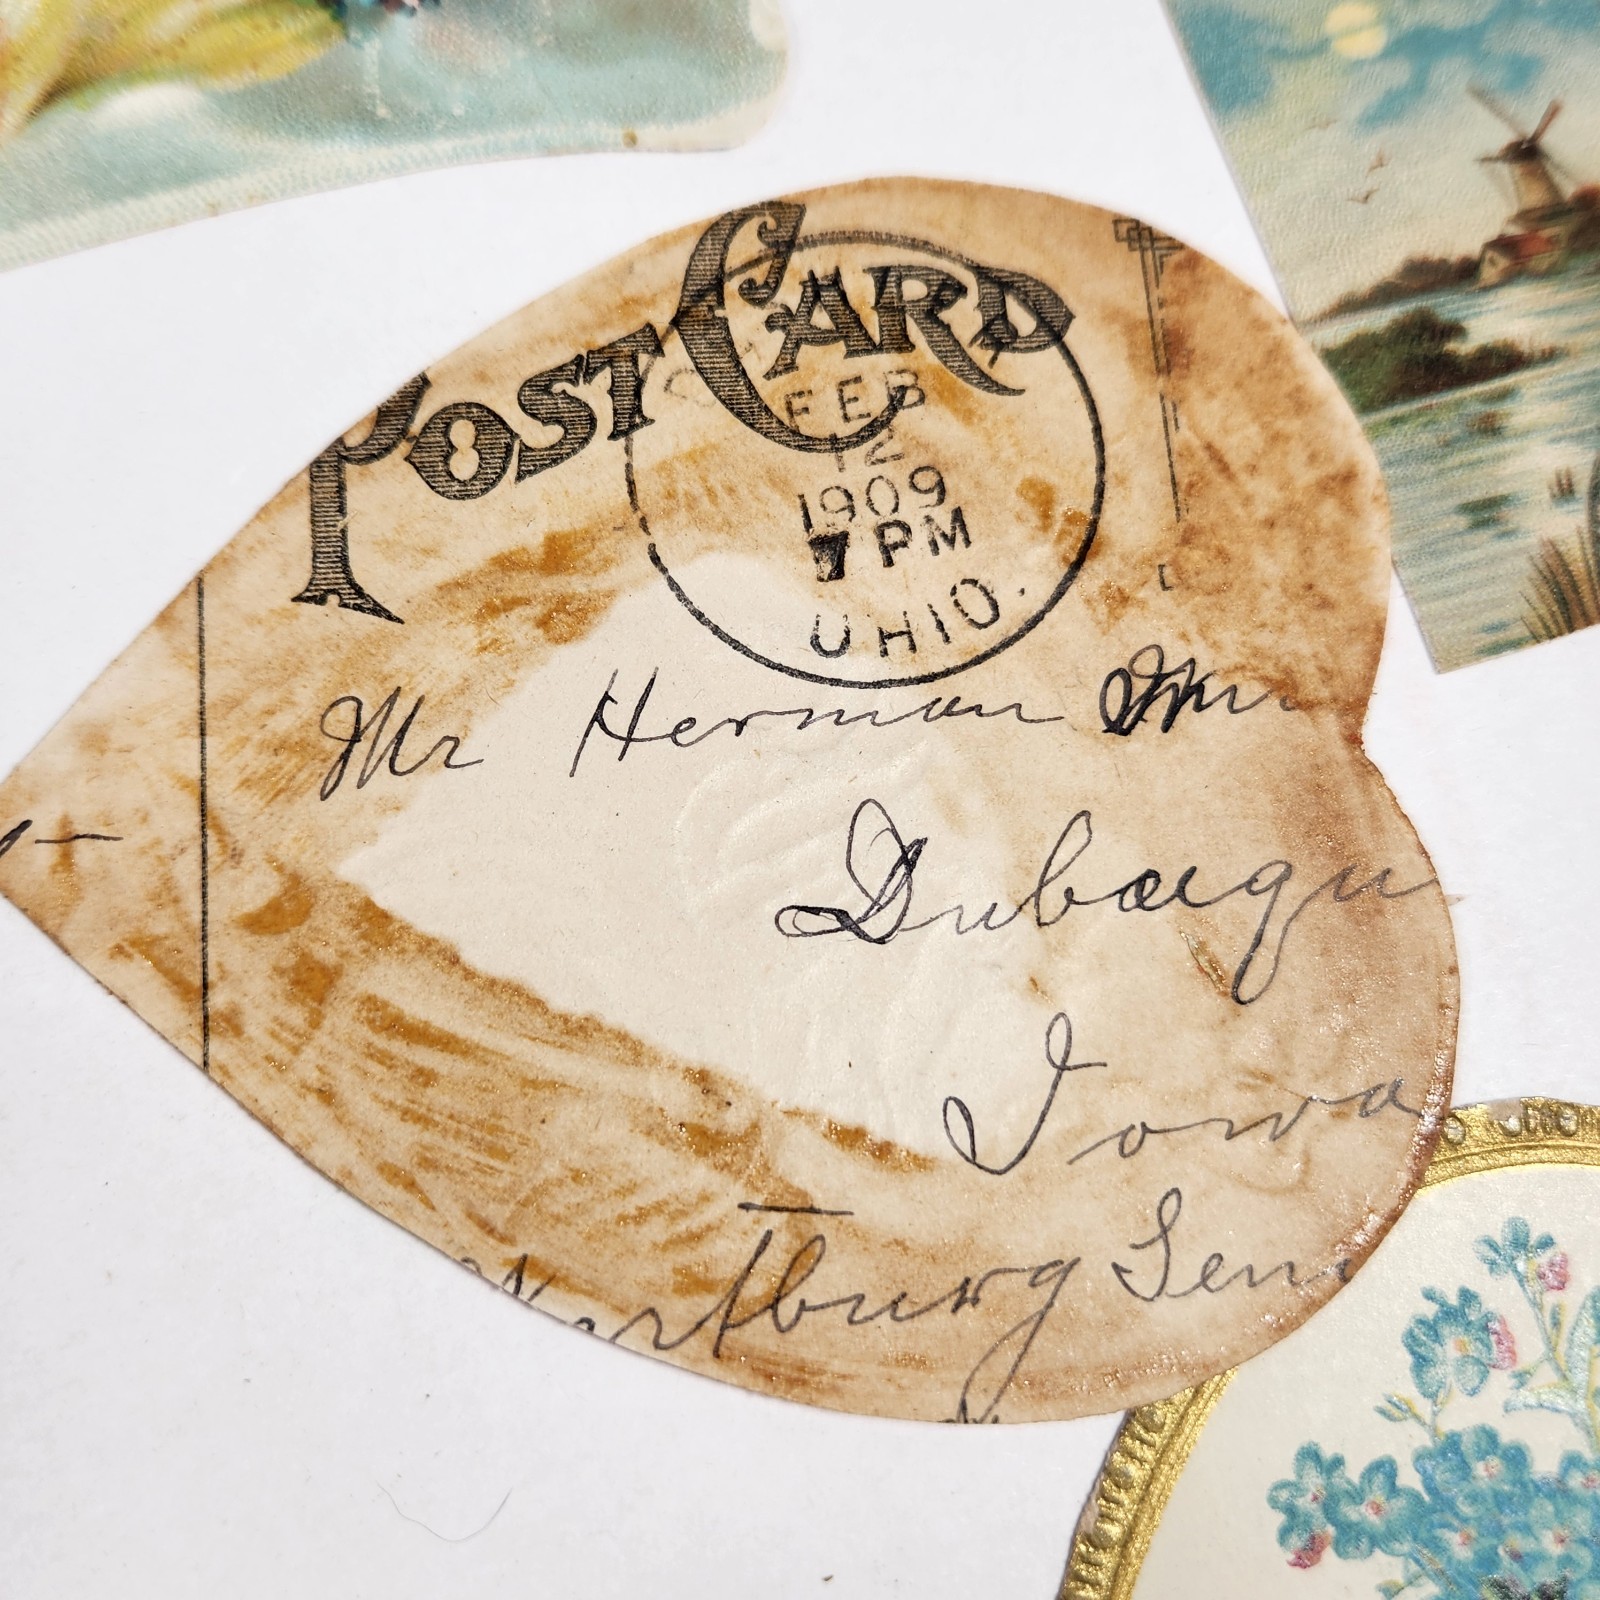 POST CARD
FEB
12
1909
7 PM
OHIO.
Mr Herman
Dubuqu
Iowa
artburg Sem